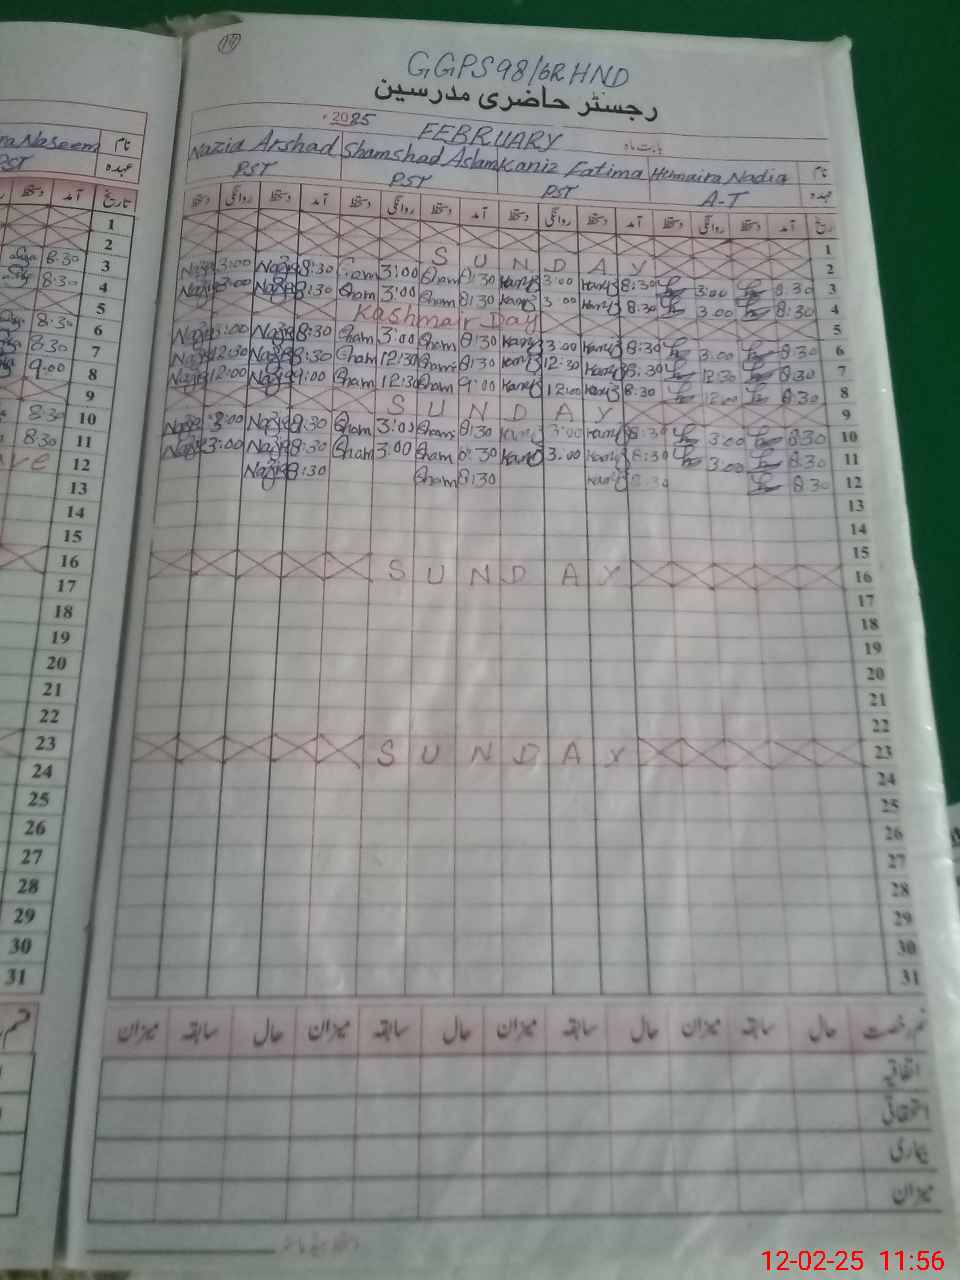 19
GGPS 98/6R HND
رجسٹر حاضری مدرسین
2025 FEBRUARY بابت ماہ
Nazia Arshad Shamshad Aslam Kaniz Fatima Humaira Nadia نام
PST PST PST A-T عہدہ
دستخط روانگی دستخط آمد دستخط روانگی دستخط آمد دستخط روانگی دستخط آمد دستخط روانگی دستخط آمد تاریخ
1
SUNDAY 2
Nazia 3:00 Nazia 8:30 Sham 3:00 Sham 8:30 Kaniz 3:00 Kaniz 8:30 3:00 8:30 3
Nazia 3:00 Nazia 8:30 Sham 3:00 Sham 8:30 Kaniz 3:00 Kaniz 8:30 3:00 8:30 4
Kashmair Day 5
Nazia 3:00 Nazia 8:30 Sham 3:00 Sham 8:30 Kaniz 3:00 Kaniz 8:30 3:00 8:30 6
Nazia 12:30 Nazia 8:30 Sham 12:30 Sham 8:30 Kaniz 12:30 Kaniz 8:30 12:30 8:30 7
Nazia 12:00 Nazia 9:00 Sham 12:30 Sham 9:00 Kaniz 12:00 Kaniz 8:30 12:00 8:30 8
SUNDAY 9
Nazia 3:00 Nazia 8:30 Sham 3:00 Sham 8:30 Kaniz 3:00 Kaniz 8:30 3:00 8:30 10
Nazia 3:00 Nazia 8:30 Sham 3:00 Sham 8:30 Kaniz 3:00 Kaniz 8:30 3:00 8:30 11
Nazia 8:30 Sham 8:30 Kaniz 8:30 8:30 12
13
14
15
SUNDAY 16
17
18
19
20
21
22
SUNDAY 23
24
25
26
27
28
29
30
31
میزان سابقہ حال میزان سابقہ حال میزان سابقہ حال میزان سابقہ حال قسم رخصت
اتفاقیہ
استحقاقی
بیماری
میزان
Naseem نام
PST عہدہ
آمد تاریخ
1
2
8:30 3
8:30 4
5
8:30 6
8:30 7
9:00 8
9
8:30 10
8:30 11
12
13
14
15
16
17
18
19
20
21
22
23
24
25
26
27
28
29
30
31
قسم
12-02-25 11:56